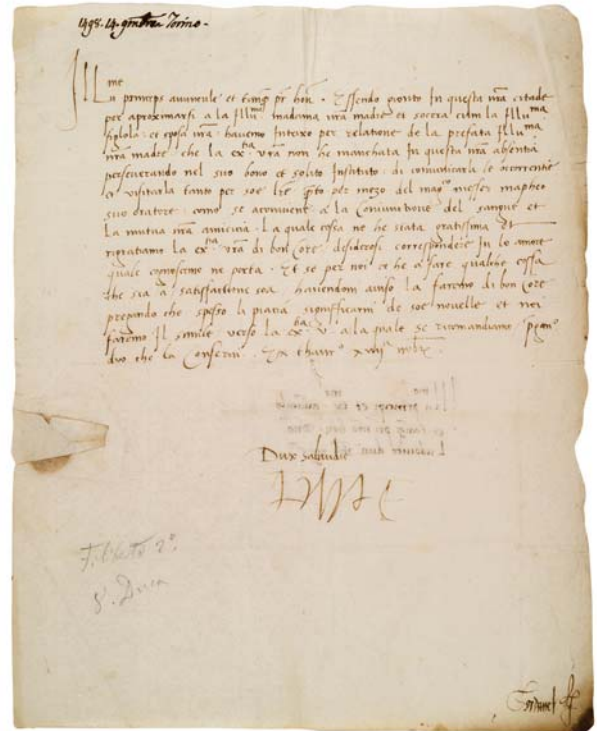 1498. 14. Torino -
Ill me
princeps avuncule et honᵉ. Essendo gionto In questa nr̃a citade
per aproximarsi a la Illuᵐᵃ madama nr̃a madre et socera cum la Illuᵐᵃ
figlola et sposa nr̃a: havemo Inteso per relatione de la prefata Illuᵐᵃ
nr̃a madre che la exᵗⁱᵃ vr̃a non he manchata In questa nr̃a absentia
perseverando nel suo bono et solito Instituto: di comunicarli le occorrentie
et visitarla tanto per soe lr̃e per mezo del magᶜᵒ messer mapheo
suo oratore: como se aconviene a la Coniunctione del sangue et
la mutua nr̃a amicicia. La quale cossa ne he stata gratissima Et
rigratiamo la exᵗⁱᵃ vr̃a di bon Core desiderosi correspondere In lo amore
quale cognoscemo ne porta. Et se per noi se he a fare qualche cossa
che sia a satisfactione soa havendom aviso la faremo di bon Core
pregando che spesso li piacia significarni de soe novelle et noi
faremo Il simile verso la exᵗⁱᵃ v. a la quale se ricomandiamo
che la Conservi. Ex novembr̃
Dux Sabaudie
Filiberto 2º.
8º. Duca